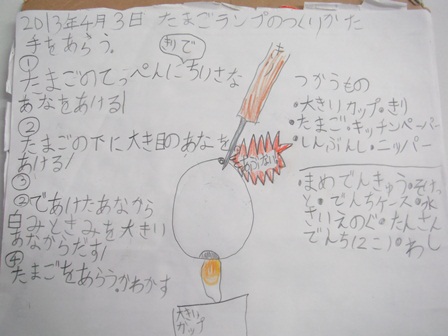 2013年4月3日 たまごランプのつくりかた
手をあらう。
きりで
①
たまごのてっぺんにちいさな
あなをあける!
②
たまごの下に大き目のあなを
あける!
③
②であけたあなから
白みときみを大きい
あなからだす!
④
たまごをあらう、かわかす
あぶない!
大きい
カップ
つかうもの
・大きいカップ・きり
・たまご・キッチンペーパー
・しんぶんし・ニッパー
・まめでんきゅう・そけ
と・でんちケース・水
さいえのぐ・たんさん
でんち(2こ)・わし